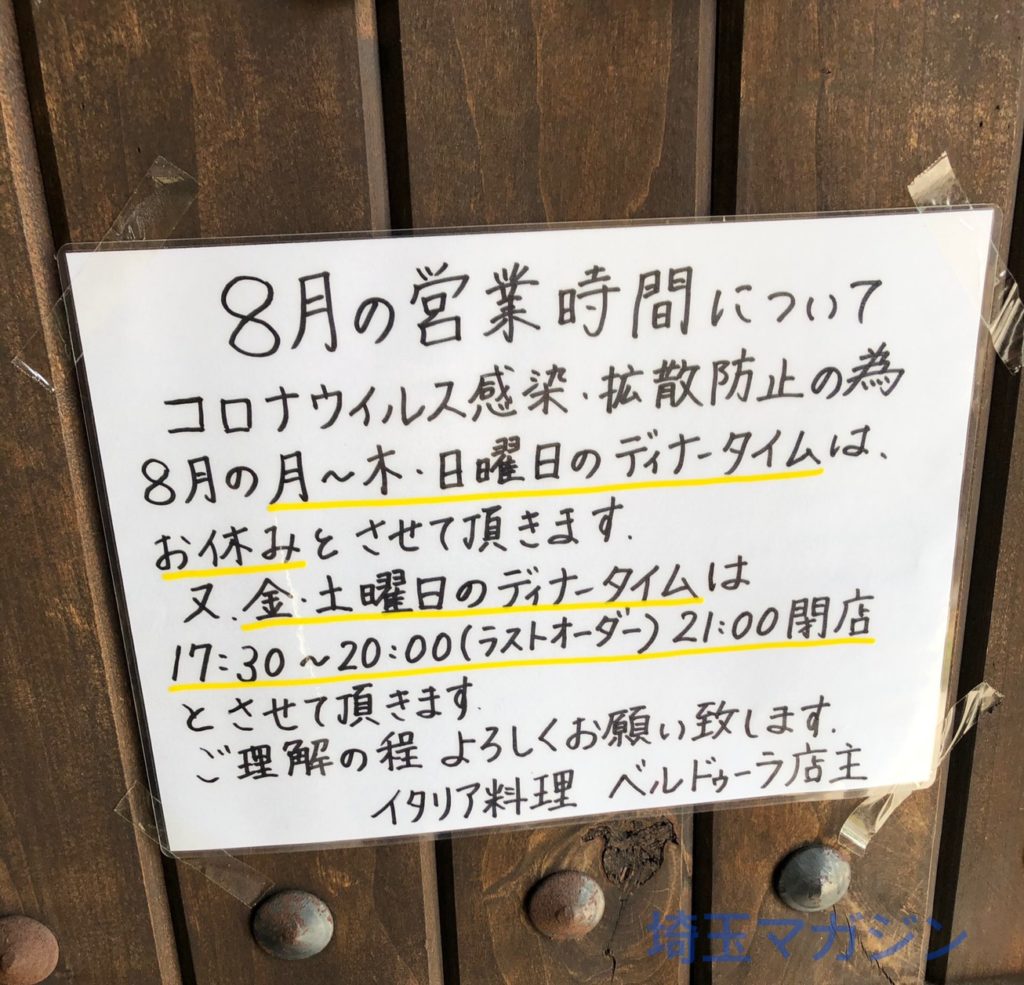 8月の営業時間について
コロナウイルス感染・拡散防止の為
8月の月～木・日曜日のディナータイムは、
お休みとさせて頂きます.
又.金・土曜日のディナータイムは
17:30～20:00(ラストオーダー) 21:00閉店
とさせて頂きます.
ご理解の程 よろしくお願い致します.
イタリア料理 ベルドゥーラ店主
埼玉マガジン